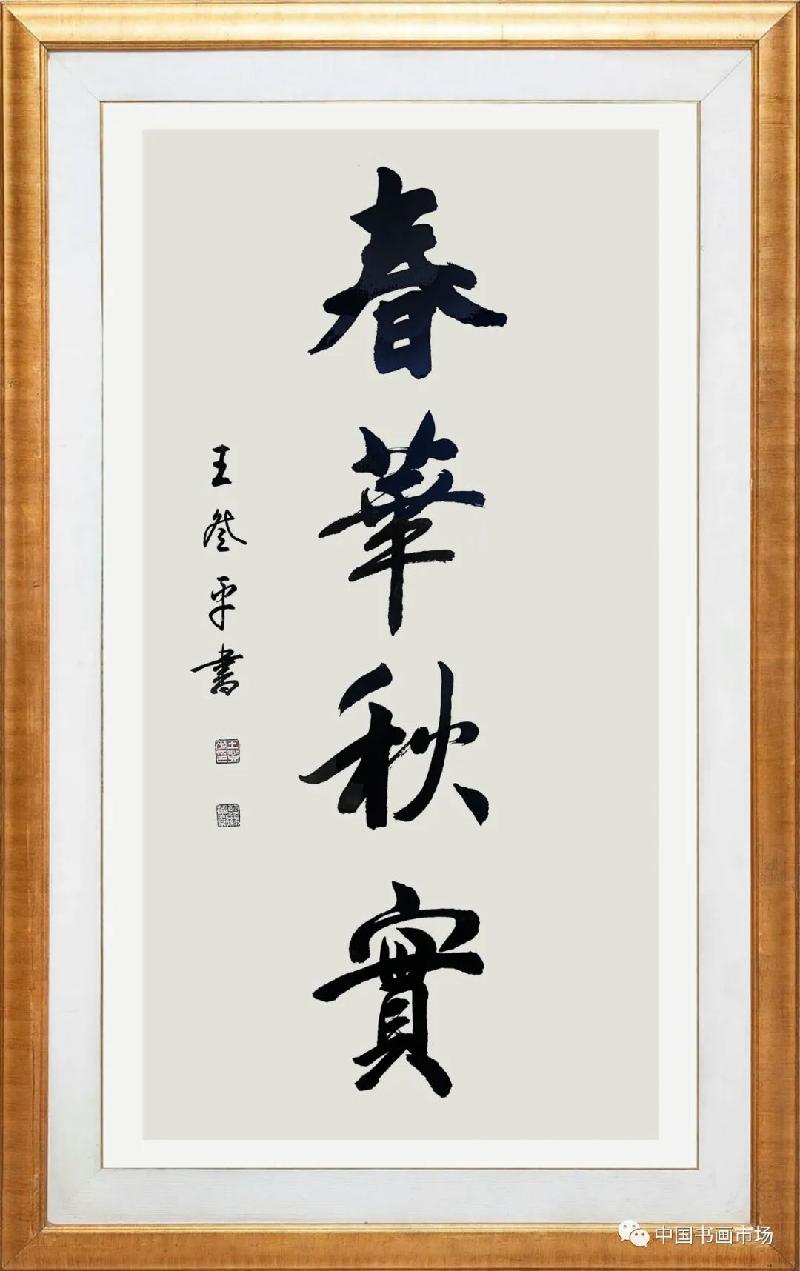 春華秋實
王叁平書
中国书画市场